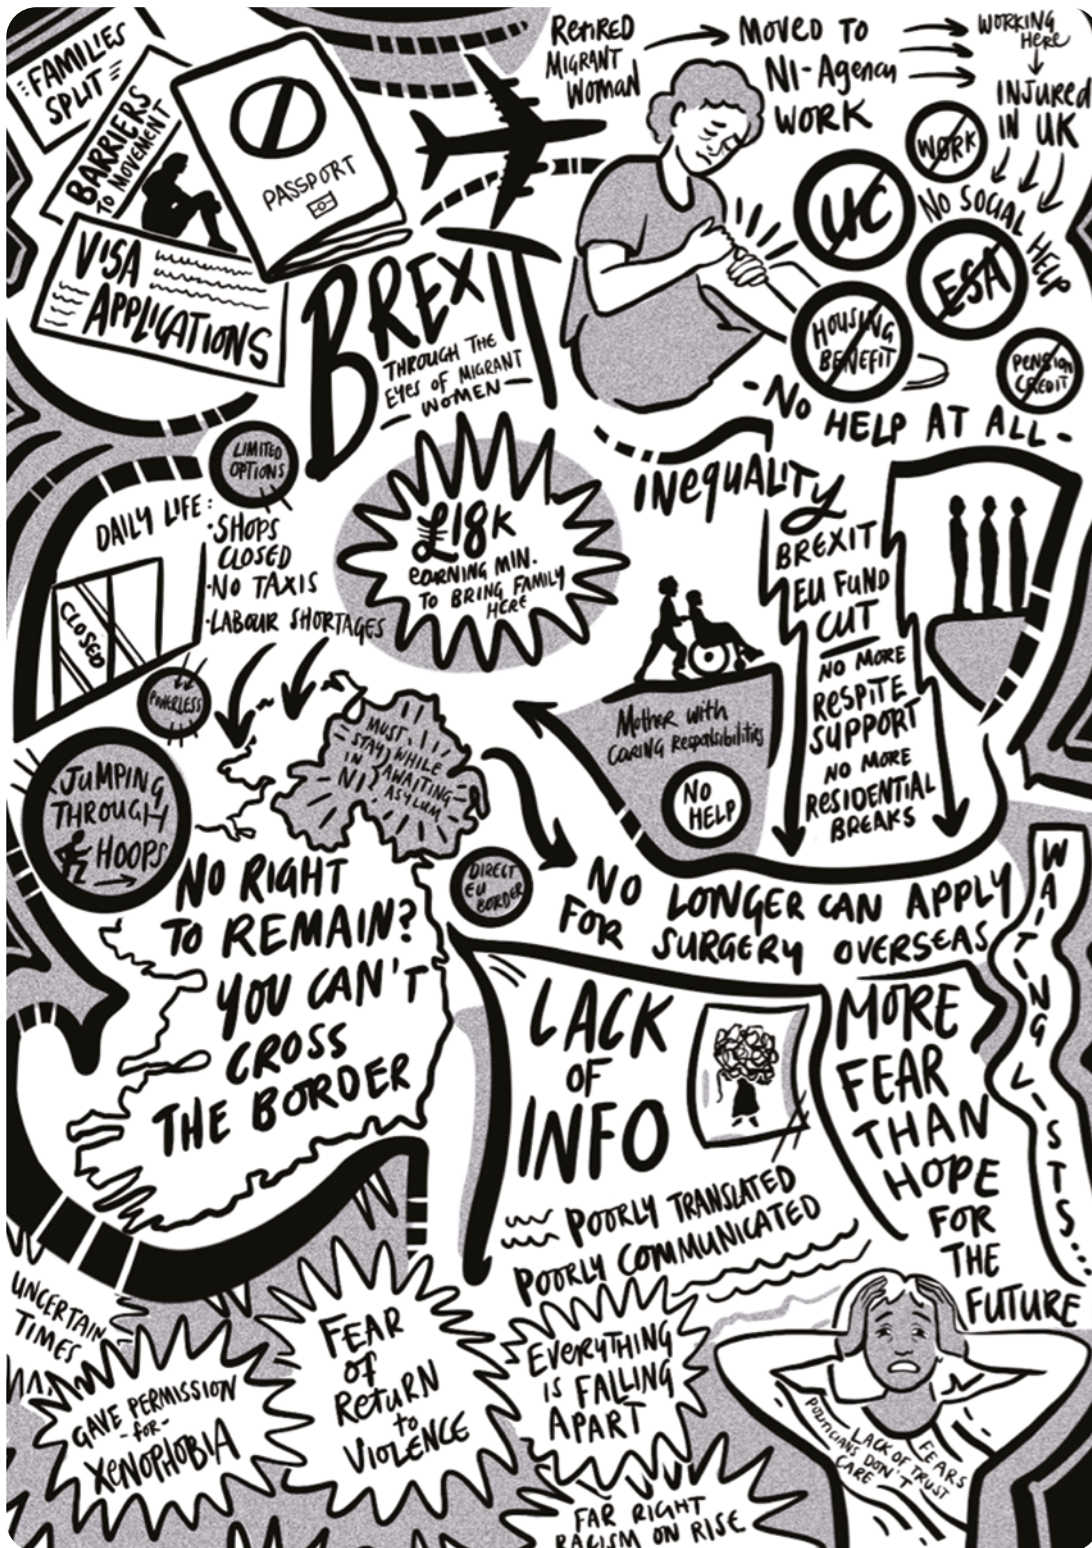 FAMILIES
SPLIT
BARRIERS
TO MOVEMENT
PASSPORT
VISA
APPLICATIONS
BREXIT
THROUGH THE
EYES OF MIGRANT
WOMEN
RETIRED
MIGRANT
WOMAN
MOVED TO
NI-Agency
WORK
WORKING
Here
INJURED
IN UK
WORK
NO SOCIAL
HELP
UC
ESA
HOUSING
BENEFIT
PENSION
CREDIT
-NO HELP AT ALL-
LIMITED
OPTIONS
DAILY LIFE:
·SHOPS
CLOSED
·NO TAXIS
·LABOUR SHORTAGES
CLOSED
£18K
EARNING MIN.
TO BRING FAMILY
HERE
INEQUALITY
BREXIT
EU FUND
CUT
NO MORE
RESPITE
SUPPORT
NO MORE
RESIDENTIAL
BREAKS
Mother with
CARING Responsibilities
NO
HELP
POWERLESS
JUMPING
THROUGH
HOOPS
MUST
STAY WHILE
IN NI AWAITING
ASYLUM
NO RIGHT
TO REMAIN?
YOU CAN'T
CROSS
THE BORDER
DIRECT
EU
BORDER
NO LONGER CAN APPLY
FOR SURGERY OVERSEAS
WAITING LISTS...
LACK
OF
INFO
POORLY TRANSLATED
POORLY COMMUNICATED
MORE
FEAR
THAN
HOPE
FOR
THE
FUTURE
UNCERTAIN
TIMES
GAVE PERMISSION
-for-
XENOPHOBIA
FEAR
OF
RETURN
to
VIOLENCE
EVERYTHING
IS FALLING
APART
FAR RIGHT
RACISM ON RISE
POLITICIANS DON'T
CARE
LACK OF TRUST
FEARS